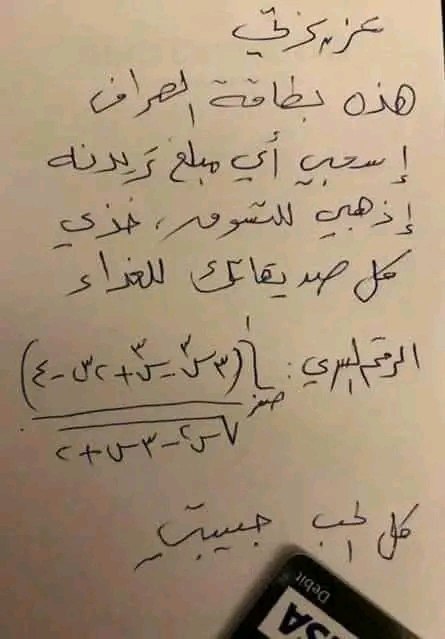 عزيزتي
هذه بطاقة الصراف
إسحبي أي مبلغ تريدنه
إذهبي للتسوق، خذي
كل صديقاتك للغداء
الرقم السري: ∫ صفر ١ (٣س٣ - س٢ + ٢س - ٤)
√س٢ - ٣س + ٢
كل الحب حبيبتي
Debit
ISA